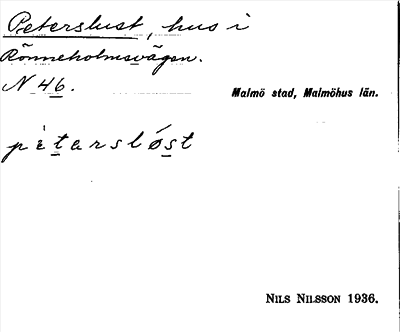 Peterslust, hus i
Rönneholmsvägen.
N 46.
Malmö stad, Malmöhus län.
pètarsløst
NILS NILSSON 1936.